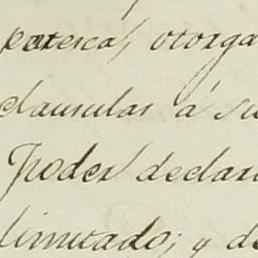 parezca, otorga
clausulas á su
Poder declara
limitado; y de